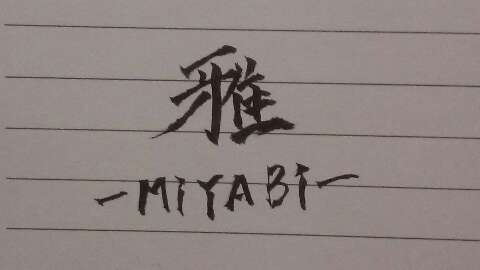 雅
-MiYABi-